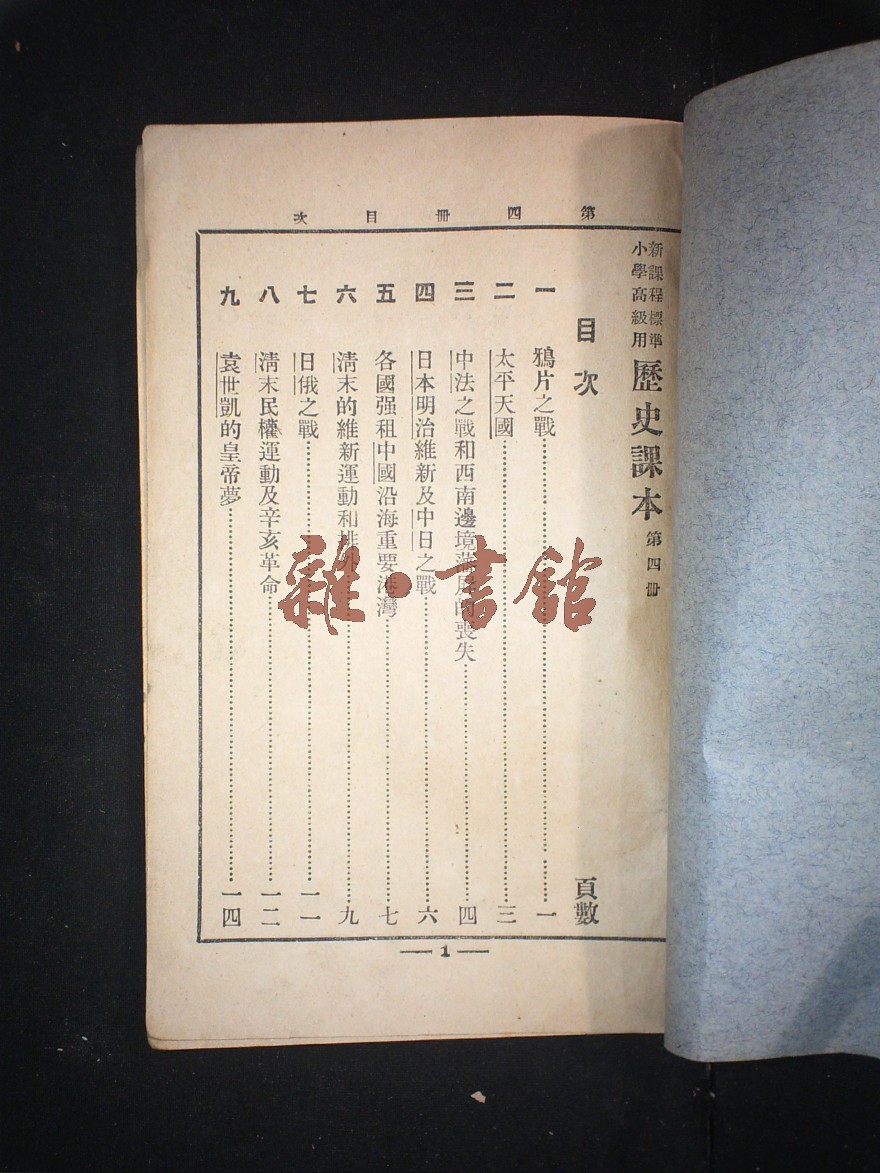 第四冊目次
新課程標準
小學高級用
歷史課本 第四冊
目次 頁數
一 鴉片之戰 一
二 太平天國 三
三 中法之戰和西南邊境藩屬的喪失 四
四 日本明治維新及中日之戰 六
五 各國强租中國沿海重要港灣 七
六 淸末的維新運動和排外 九
七 日俄之戰 一一
八 淸末民權運動及辛亥革命 一二
九 袁世凱的皇帝夢 一四
1
雜·書館